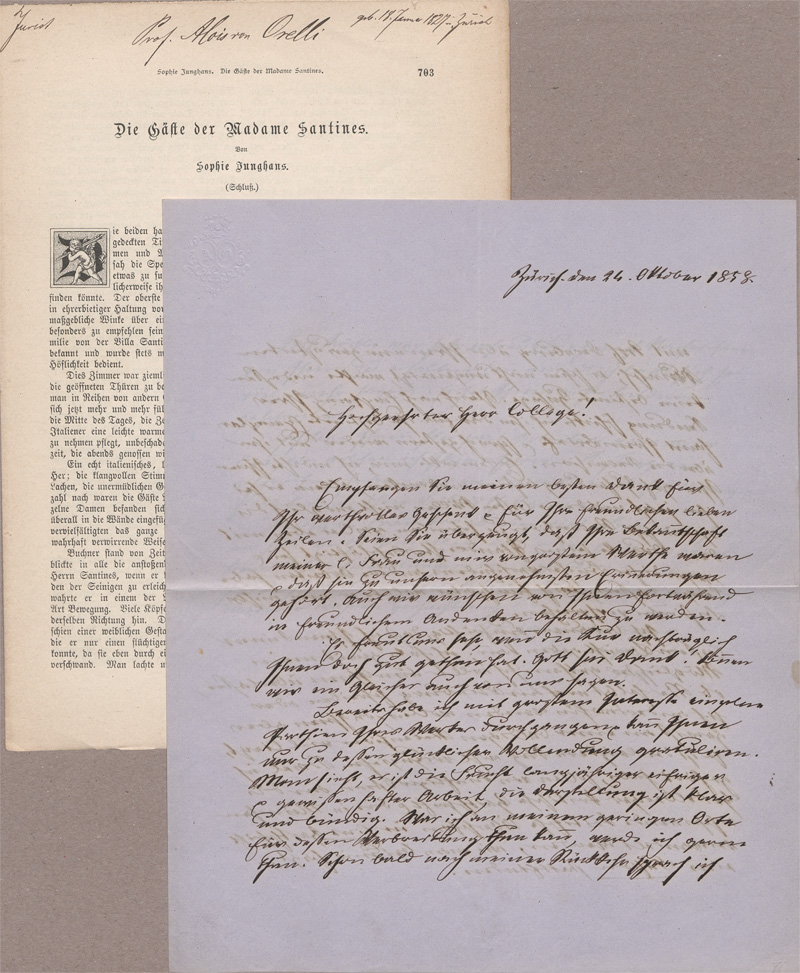 Jurist
Prof. Alois von Orelli
geb. 18. Januar 1827 - Zürich
Sophie Junghans. Die Gäste der Madame Santines.
703
Die Gäste der Madame Santines.
Von
Sophie Junghans.
(Schluß.)
ie beiden ha
gedeckten Ti
men und A
sah die Spe
etwas zu fu
licherweise ih
finden könnte. Der oberste
in ehrerbietiger Haltung vor
maßgebliche Winke über ei
besonders zu empfehlen sein
milie von der Villa Santi
bekannt und wurde stets m
Höflichkeit bedient.
Dies Zimmer war ziemli
die geöffneten Thüren zu be
man in Reihen von andern
sich jetzt mehr und mehr fül
die Mitte des Tages, die Ze
Italiener eine leichte warme
zu nehmen pflegt, unbeschade
zeit, die abends genossen wi
Ein echt italienisches, l
Her; die klangvollen Stimm
Lachen, die unermüdlichen G
zahl nach waren die Gäste
zelne Damen befanden sich
überall in die Wände eingefü
vervielfältigten das ganze
wahrhaft verwirrende Weise
Buchner stand von Zeit
blickte in alle die anstoßen
Herrn Santines, wenn er
den der Seinigen zu erleich
wahrte er in einem der
Art Bewegung. Viele Köpfe
derselben Richtung hin. D
schien einer weiblichen Gesta
die er nur einen flüchtigen
konnte, da sie eben durch ei
verschwand. Man lachte u
Zürich den 24. Oktober 1858.
Hochgeehrter Herr College!
Empfangen Sie meinen besten Dank für
Ihr werthvolles Geschenk & für Ihre freundlichen lieben
Zeilen. Seien Sie überzeugt, daß Ihre Bekanntschaft
meiner l. Frau und mir von großem Werthe waren
& daß sie zu unsern angenehmsten Erinnerungen
gehört. Auch wir wünschen von Ihnen fortwährend
in freundlichem Andenken behalten zu werden.
Es freut uns sehr, wenn die Kur nachträglich
Ihnen doch gut gethan hat. Gott sei Dank! können
wir ein Gleiches auch von uns sagen.
Bereits habe ich mit großem Interesse einzelne
Parthien Ihres Werkes durchgangen & kann Ihnen
nur zu dessen glücklicher Vollendung gratuliren.
Man sieht, es ist die Frucht langjähriger eifriger
& gewissenhafter Arbeit, die Darstellung ist klar
und bündig. Was ich an meinem geringen Orte
für dessen Verbreitung thun kann, werde ich gerne
thun. Schon bald nach meiner Rückkehr sprach ich